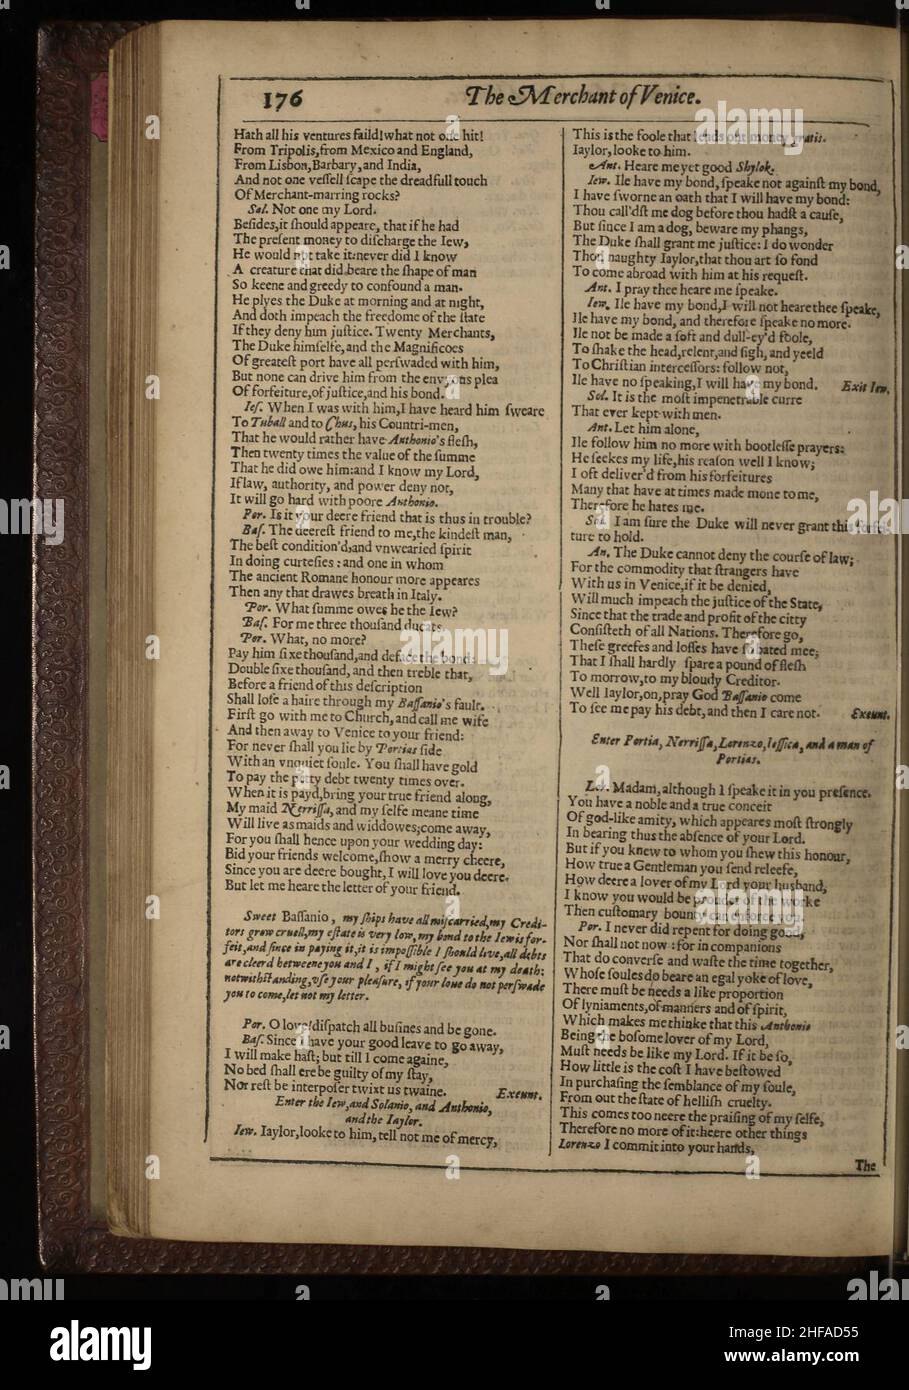 176
The Merchant of Venice.
Hath all his ventures faild! what not one hit!
From Tripolis, from Mexico and England,
From Lisbon, Barbary, and India,
And not one vessell scape the dreadfull touch
Of Merchant-marring rocks?
Sal. Not one my Lord.
Besides, it should appeare, that if he had
The present money to discharge the Iew,
He would not take it: never did I know
A creature that did beare the shape of man
So keene and greedy to confound a man.
He plyes the Duke at morning and at night,
And doth impeach the freedome of the state
If they deny him justice. Twenty Merchants,
The Duke himselfe, and the Magnificoes
Of greatest port have all perswaded with him,
But none can drive him from the envyous plea
Of forfeiture, of justice, and his bond.
Ies. When I was with him, I have heard him sweare
To Tuball and to Chus, his Countri-men,
That he would rather have Anthonio's flesh,
Then twenty times the value of the summe
That he did owe him: and I know my Lord,
If law, authority, and power deny not,
It will go hard with poore Anthonio.
Por. Is it your deere friend that is thus in trouble?
Bas. The deerest friend to me, the kindest man,
The best condition'd, and vnwearied spirit
In doing curtesies: and one in whom
The ancient Romane honour more appeares
Then any that drawes breath in Italy.
Por. What summe owes he the Iew?
Bas. For me three thousand ducats.
Por. What, no more?
Pay him sixe thousand, and deface the bond:
Double sixe thousand, and then treble that,
Before a friend of this description
Shall lose a haire through my Bassanio's fault.
First go with me to Church, and call me wife
And then away to Venice to your friend:
For never shall you lie by Portias side
With an vnquiet soule. You shall have gold
To pay the petty debt twenty times over.
When it is payd, bring your true friend along,
My maid Nerrissa, and my selfe meane time
Will live as maids and widdowes; come away,
For you shall hence upon your wedding day:
Bid your friends welcome, show a merry cheere,
Since you are deere bought, I will love you deere.
But let me heare the letter of your friend.
Sweet Bassanio, my ships have all miscarried, my Credi-
tors grow cruell, my estate is very low, my bond to the Iew is for-
feit, and since in paying it, it is impossible I should live, all debts
are cleerd betweene you and I, if I might see you at my death:
notwithstanding, vse your pleasure, if your loue do not perswade
you to come, let not my letter.
Por. O love! dispatch all busines and be gone.
Bas. Since I have your good leave to go away,
I will make hast; but till I come againe,
No bed shall ere be guilty of my stay,
Nor rest be interposer twixt us twaine. Exeunt.
Enter the Iew, and Solanio, and Anthonio,
and the Iaylor.
Iew. Iaylor, looke to him, tell not me of mercy,
This is the foole that lends out money gratis.
Iaylor, looke to him.
Ant. Heare me yet good Shylok.
Iew. Ile have my bond, speake not against my bond,
I have sworne an oath that I will have my bond:
Thou call'dst me dog before thou hadst a cause,
But since I am a dog, beware my phangs,
The Duke shall grant me justice: I do wonder
Thou naughty Iaylor, that thou art so fond
To come abroad with him at his request.
Ant. I pray thee heare me speake.
Iew. Ile have my bond, I will not heare thee speake,
Ile have my bond, and therefore speake no more.
Ile not be made a soft and dull-ey'd foole,
To shake the head, relent, and sigh, and yeeld
To Christian intercessors: follow not,
Ile have no speaking, I will have my bond. Exit Iew.
Sol. It is the most impenetrable curre
That ever kept with men.
Ant. Let him alone,
Ile follow him no more with bootlesse prayers:
He seekes my life, his reason well I know;
I oft deliver'd from his forfeitures
Many that have at times made mone to me,
Therefore he hates me.
Sol. I am sure the Duke will never grant this forfei-
ture to hold.
An. The Duke cannot deny the course of law;
For the commodity that strangers have
With us in Venice, if it be denied,
Will much impeach the justice of the State,
Since that the trade and profit of the citty
Consisteth of all Nations. Therefore go,
These greefes and losses have so bated mee;
That I shall hardly spare a pound of flesh
To morrow, to my bloudy Creditor.
Well Iaylor, on, pray God Bassanio come
To see me pay his debt, and then I care not. Exeunt.
Enter Portia, Nerrissa, Lorenzo, Iessica, and a man of
Portias.
Lor. Madam, although I speake it in you presence.
You have a noble and a true conceit
Of god-like amity, which appeares most strongly
In bearing thus the absence of your Lord.
But if you knew to whom you shew this honour,
How true a Gentleman you send releefe,
How deere a lover of my Lord your husband,
I know you would be prouder of the worke
Then customary bounty can enforce you.
Por. I never did repent for doing good,
Nor shall not now: for in companions
That do converse and waste the time together,
Whose soules do beare an egal yoke of love,
There must be needs a like proportion
Of lyniaments, of manners and of spirit,
Which makes me thinke that this Anthonio
Being the bosome lover of my Lord,
Must needs be like my Lord. If it be so,
How little is the cost I have bestowed
In purchasing the semblance of my soule,
From out the state of hellish cruelty.
This comes too neere the praising of my selfe,
Therefore no more of it: heere other things
Lorenzo I commit into your hands,
The
alamy
Image ID: 2HFAD55
www.alamy.com